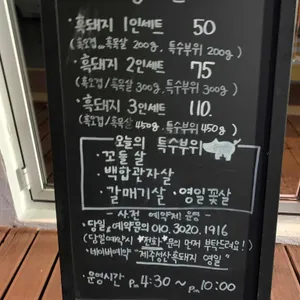 ·흑돼지 1인세트 50
(흑오겹, 흑목살 200g, 특수부위 200g)
·흑돼지 2인세트 75
(흑오겹/흑목살 300g, 특수부위 300g)
·흑돼지 3인세트 110.
(흑오겹/흑목살 450g, 특수부위 450g)
오늘의 특수부위
·꼬들살
·백합관자살
·갈매기살 ·영일꽃살
- 사전 예약제 운영 -
·당일, 예약문의 010.3020.1916
(당일예약시 "전화"문의 먼저 부탁드려요!)
·네이버예약 "제주성산흑돼지 영일"
·운영시간 · Pm 4:30 ~ Pm 10:00